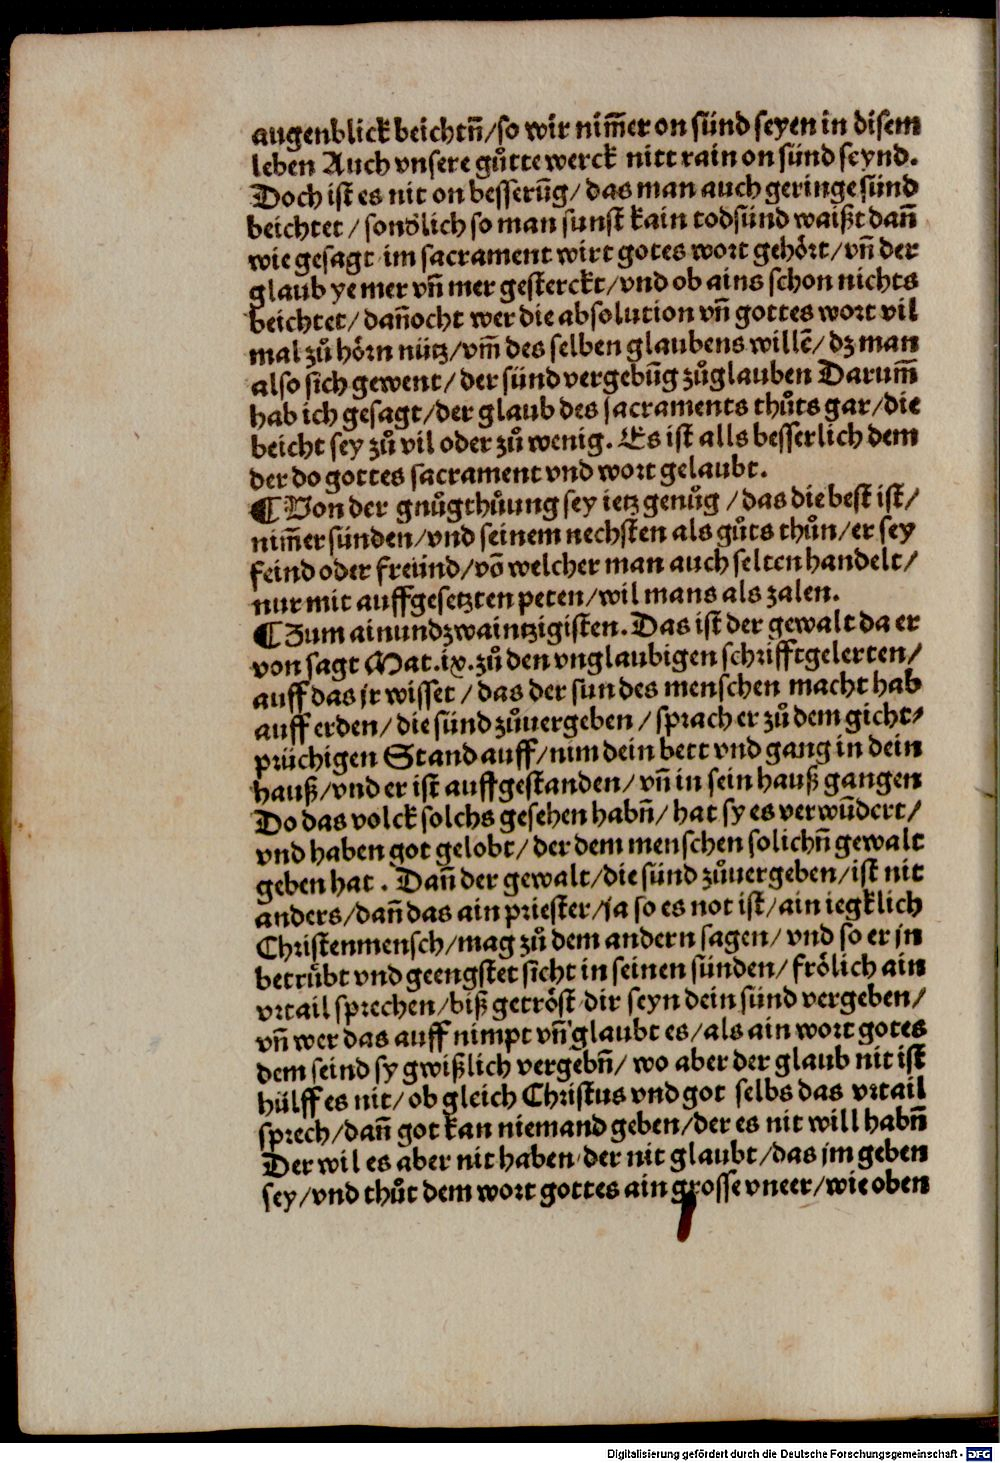 augenblick beichtn̄/so wir nim̄er on sünd seyen in disem
leben Auch vnsere gůtte werck nitt rain on sünd seynd.
Doch ist es nit on besserūg/ das man auch geringe sünd
beichtet / sondlich so man sunst kain todsünd waißt dan̄
wie gesagt im sacrament wirt gotes wort gehört/ vn̄ der
glaub ye mer vn̄ mer gesterckt/vnd ob ains schon nichts
beichtet/ dan̄ocht wer die absolution vn̄ gottes wort vil
mal zů hörn nütz/vm̄ des selben glaubens willē/ dz man
also sich gewent/ der sünd vergebūg zůglauben Darum̄
hab ich gesagt/der glaub des sacraments thůts gar/die
beicht sey zů vil oder zů wenig. Es ist alls besserlich dem
der do gottes sacrament vnd wort gelaubt.
¶ Von der gnůgthůung sey ietz genůg /das die best ist/
nim̄er sünden/vnd seinem nechsten als gůts thůn/er sey
feind oder freünd/vō welcher man auch selten handelt/
nur mit auffgesetzten peten/wil mans als zalen.
¶ Zum ainundzwaintzigisten. Das ist der gewalt da er
von sagt Mat.ix. zů den vnglaubigen schrifftgelerten/
auff das jr wisset / das der sun des menschen macht hab
auff erden/ die sünd zůuergeben / sprach er zů dem gicht⸗
prüchigen Stand auff/nim dein bett vnd gang in dein
hauß/vnd er ist auffgestanden/ vn̄ in sein hauß gangen
Do das volck solchs gesehen habn̄/ hat sy es verwūdert/
vnd haben got gelobt/ der dem menschen solichn̄ gewalt
geben hat. Dan̄ der gewalt/die sünd zůuergeben/ist nit
anders/dan̄ das ain priester/ja so es not ist/ain iegklich
Christenmensch/mag zů dem andern sagen/ vnd so er jn
betrübt vnd geengstet sicht in seinen sünden/ frölich ain
vrtail sprechen/biß getröst dir seyn dein sünd vergeben/
vn̄ wer das auff nimpt vn̄ glaubt es/als ain wort gotes
dem seind sy gwißlich vergebn̄/ wo aber der glaub nit ist
hülff es nit/ ob gleich Christus vnd got selbs das vrtail
sprech/dan̄ got kan niemand geben/der es nit will habn̄
Der wil es aber nit haben der nit glaubt/das jm geben
sey/vnd thůt dem wort gottes ain grosse vneer/wie oben
Digitalisierung gefördert durch die Deutsche Forschungsgemeinschaft - DFG